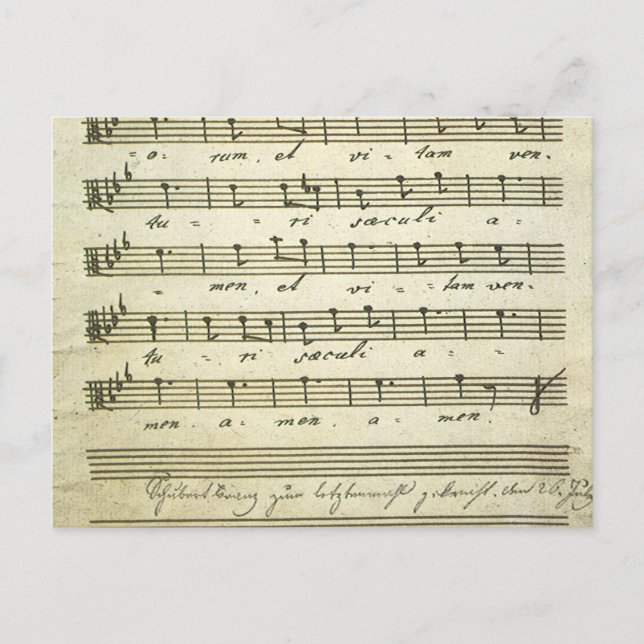 -o- rum, et vi- tam ven-
tu- - ri sæculi a-
- men, et vi- tam ven-
tu- - ri sæculi a- -
men. a- men, a- men.
Schubert Franz zum letztenmahl gekräht. den 26. July